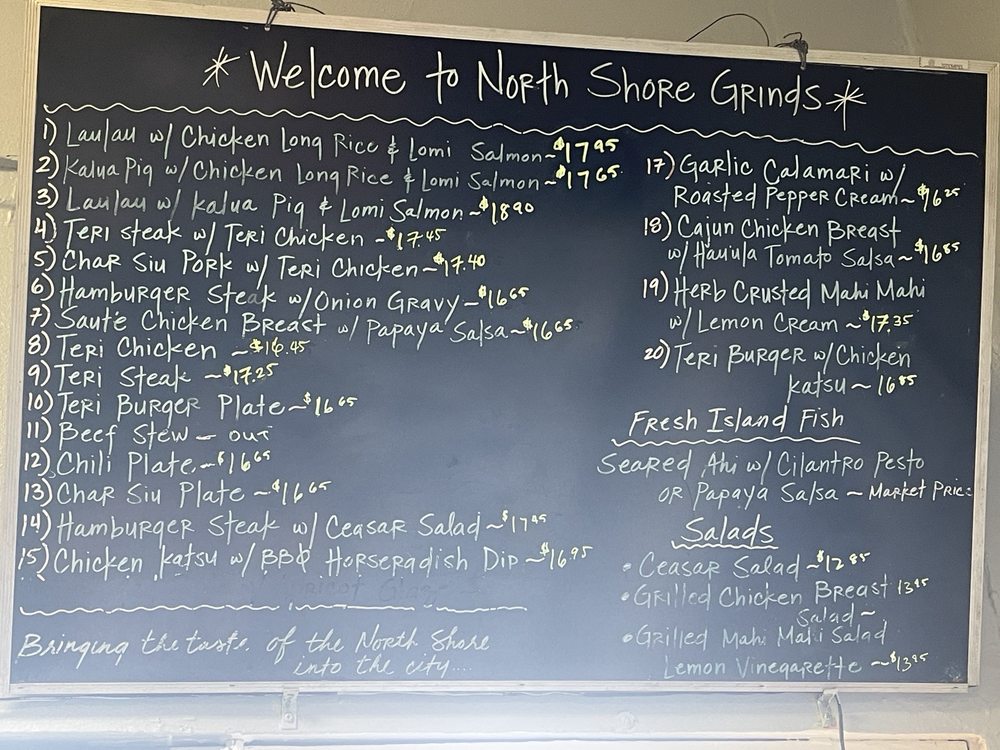 * Welcome to North Shore Grinds *
1) Laulau w/ Chicken Long Rice & Lomi Salmon ~ $17.95
2) Kalua Pig w/ Chicken Long Rice & Lomi Salmon ~ $17.65
3) Laulau w/ Kalua Pig & Lomi Salmon ~ $18.90
4) Teri Steak w/ Teri Chicken ~ $17.45
5) Char Siu Pork w/ Teri Chicken ~ $17.40
6) Hamburger Steak w/ Onion Gravy ~ $16.65
7) Sauté Chicken Breast w/ Papaya Salsa ~ $16.65
8) Teri Chicken ~ $16.45
9) Teri Steak ~ $17.25
10) Teri Burger Plate ~ $16.65
11) Beef Stew ~ out
12) Chili Plate ~ $16.65
13) Char Siu Plate ~ $16.65
14) Hamburger Steak w/ Ceasar Salad ~ $17.95
15) Chicken Katsu w/ BBQ Horseradish Dip ~ $16.95
Bringing the taste of the North Shore
into the city....
17) Garlic Calamari w/
Roasted Pepper Cream ~ $16.25
18) Cajun Chicken Breast
w/ Hauula Tomato Salsa ~ $16.85
19) Herb Crusted Mahi Mahi
w/ Lemon Cream ~ $17.35
20) Teri Burger w/ Chicken
Katsu ~ 16.85
Fresh Island Fish
Seared Ahi w/ Cilantro Pesto
or Papaya Salsa ~ Market Price
Salads
• Ceasar Salad ~ $12.85
• Grilled Chicken Breast 13.95
Salad ~
• Grilled Mahi Mahi Salad
Lemon Vinegarette ~ $13.95